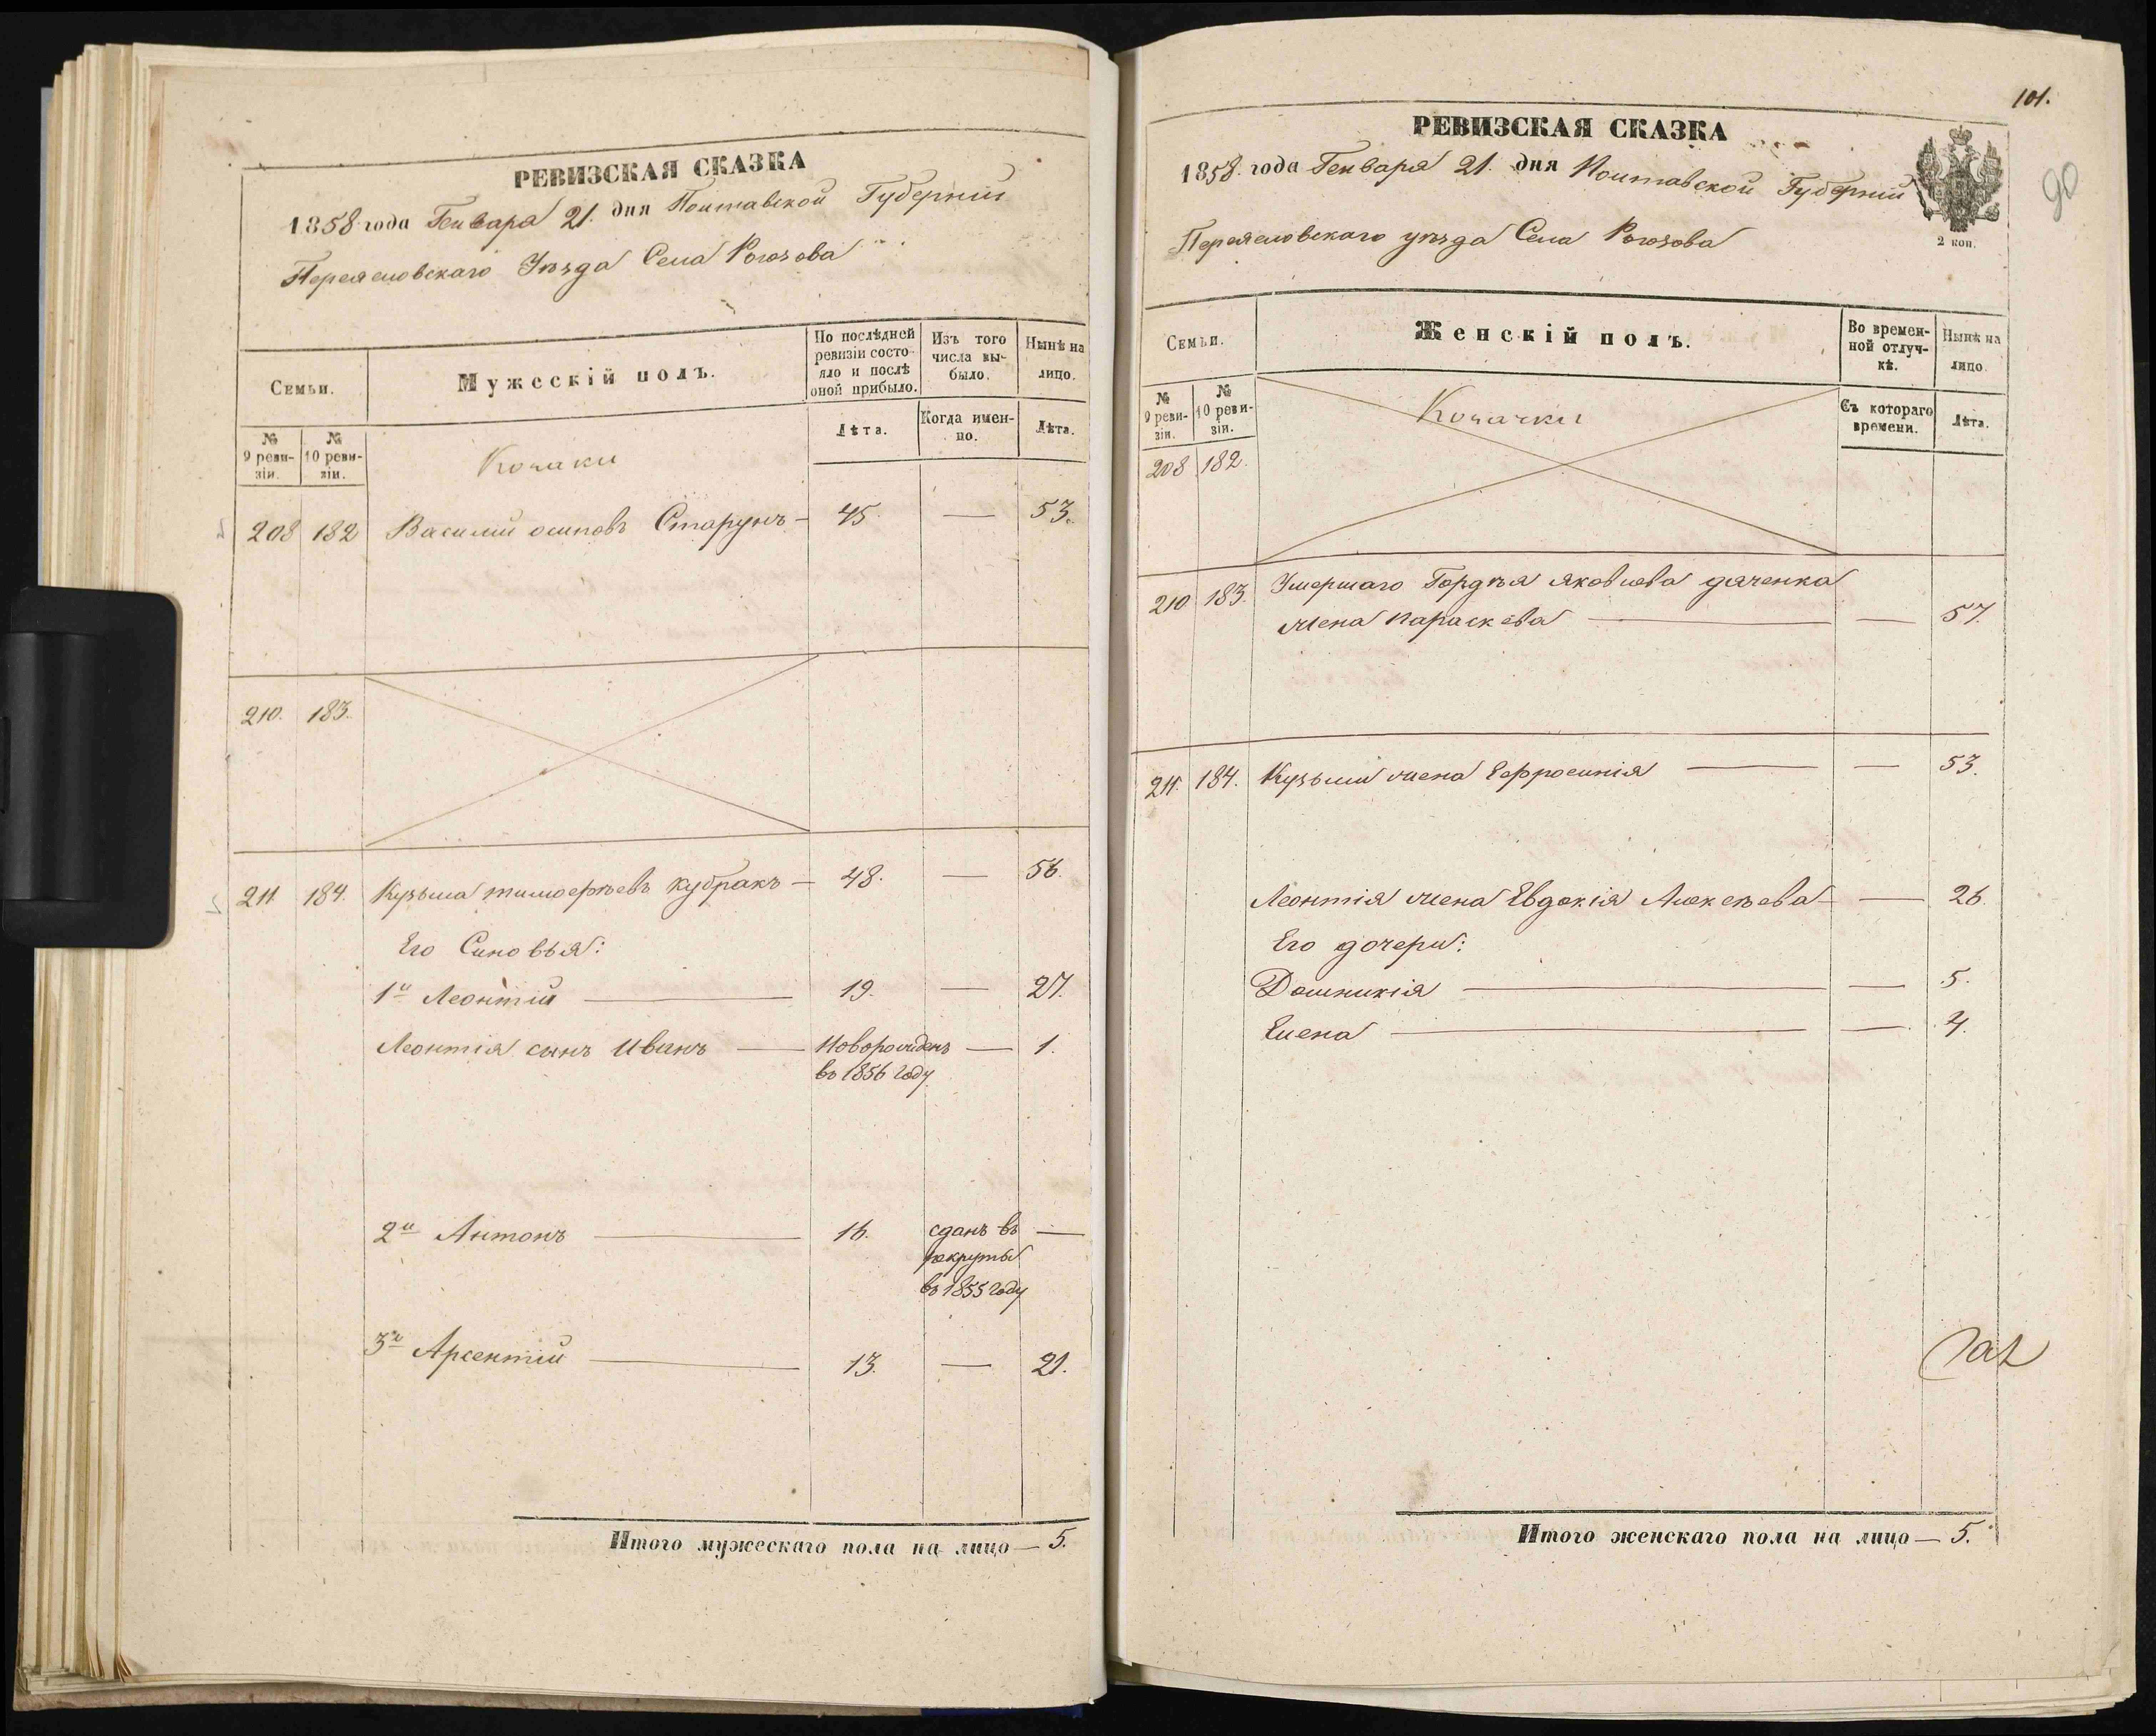 РЕВИЗСКАЯ СКАЗКА
1858 года Генваря 21. дня Полтавской Губерніи
Переясловскаго Уѣзда Села Рогозова
Семьи.
Мужескій полъ.
По послѣдней ревизіи состояло и послѣ оной прибыло.
Изъ того числа выбыло.
Нынѣ на лицо.
№ 9 ревизіи.
№ 10 ревизіи.
Лѣта.
Когда именно.
Лѣта.
Козаки
208 182 Василий осиповъ Старунъ — 45. — 53.
210. 183.
211 184. Кузьма тимоѳѣевъ кубракъ — 48. — 56.
Его Сыновья:
1й Леонтій — 19. — 27.
Леонтія сынъ Иванъ — Новорожденъ — 1.
въ 1856 году
2й Антонъ — 16. сданъ въ —
рекруты
въ 1855 году
3й Арсентій — 13. — 21.
Итого мужескаго пола на лицо — 5.
101.
90
РЕВИЗСКАЯ СКАЗКА
1858. года Генваря 21. дня Полтавской Губерніи
2 коп.
Переясловскаго уѣзда Села Рогозова
Семьи.
Женскій полъ.
Во временной отлучкѣ.
Нынѣ на лицо.
№ 9 ревизіи.
№ 10 ревизіи.
Съ котораго времени.
Лѣта.
Козачки
208 182.
210 183. Умершаго Гордѣя яковлева дяченка
жена параскева — — 57.
211. 184. Кузьмы жена Ефросинія — — 53.
Леонтія жена Евдокія Алексѣева — — 26.
Его дочери:
Домникія — — 5.
Елена — — 4.
Итого женскаго пола на лицо — 5.